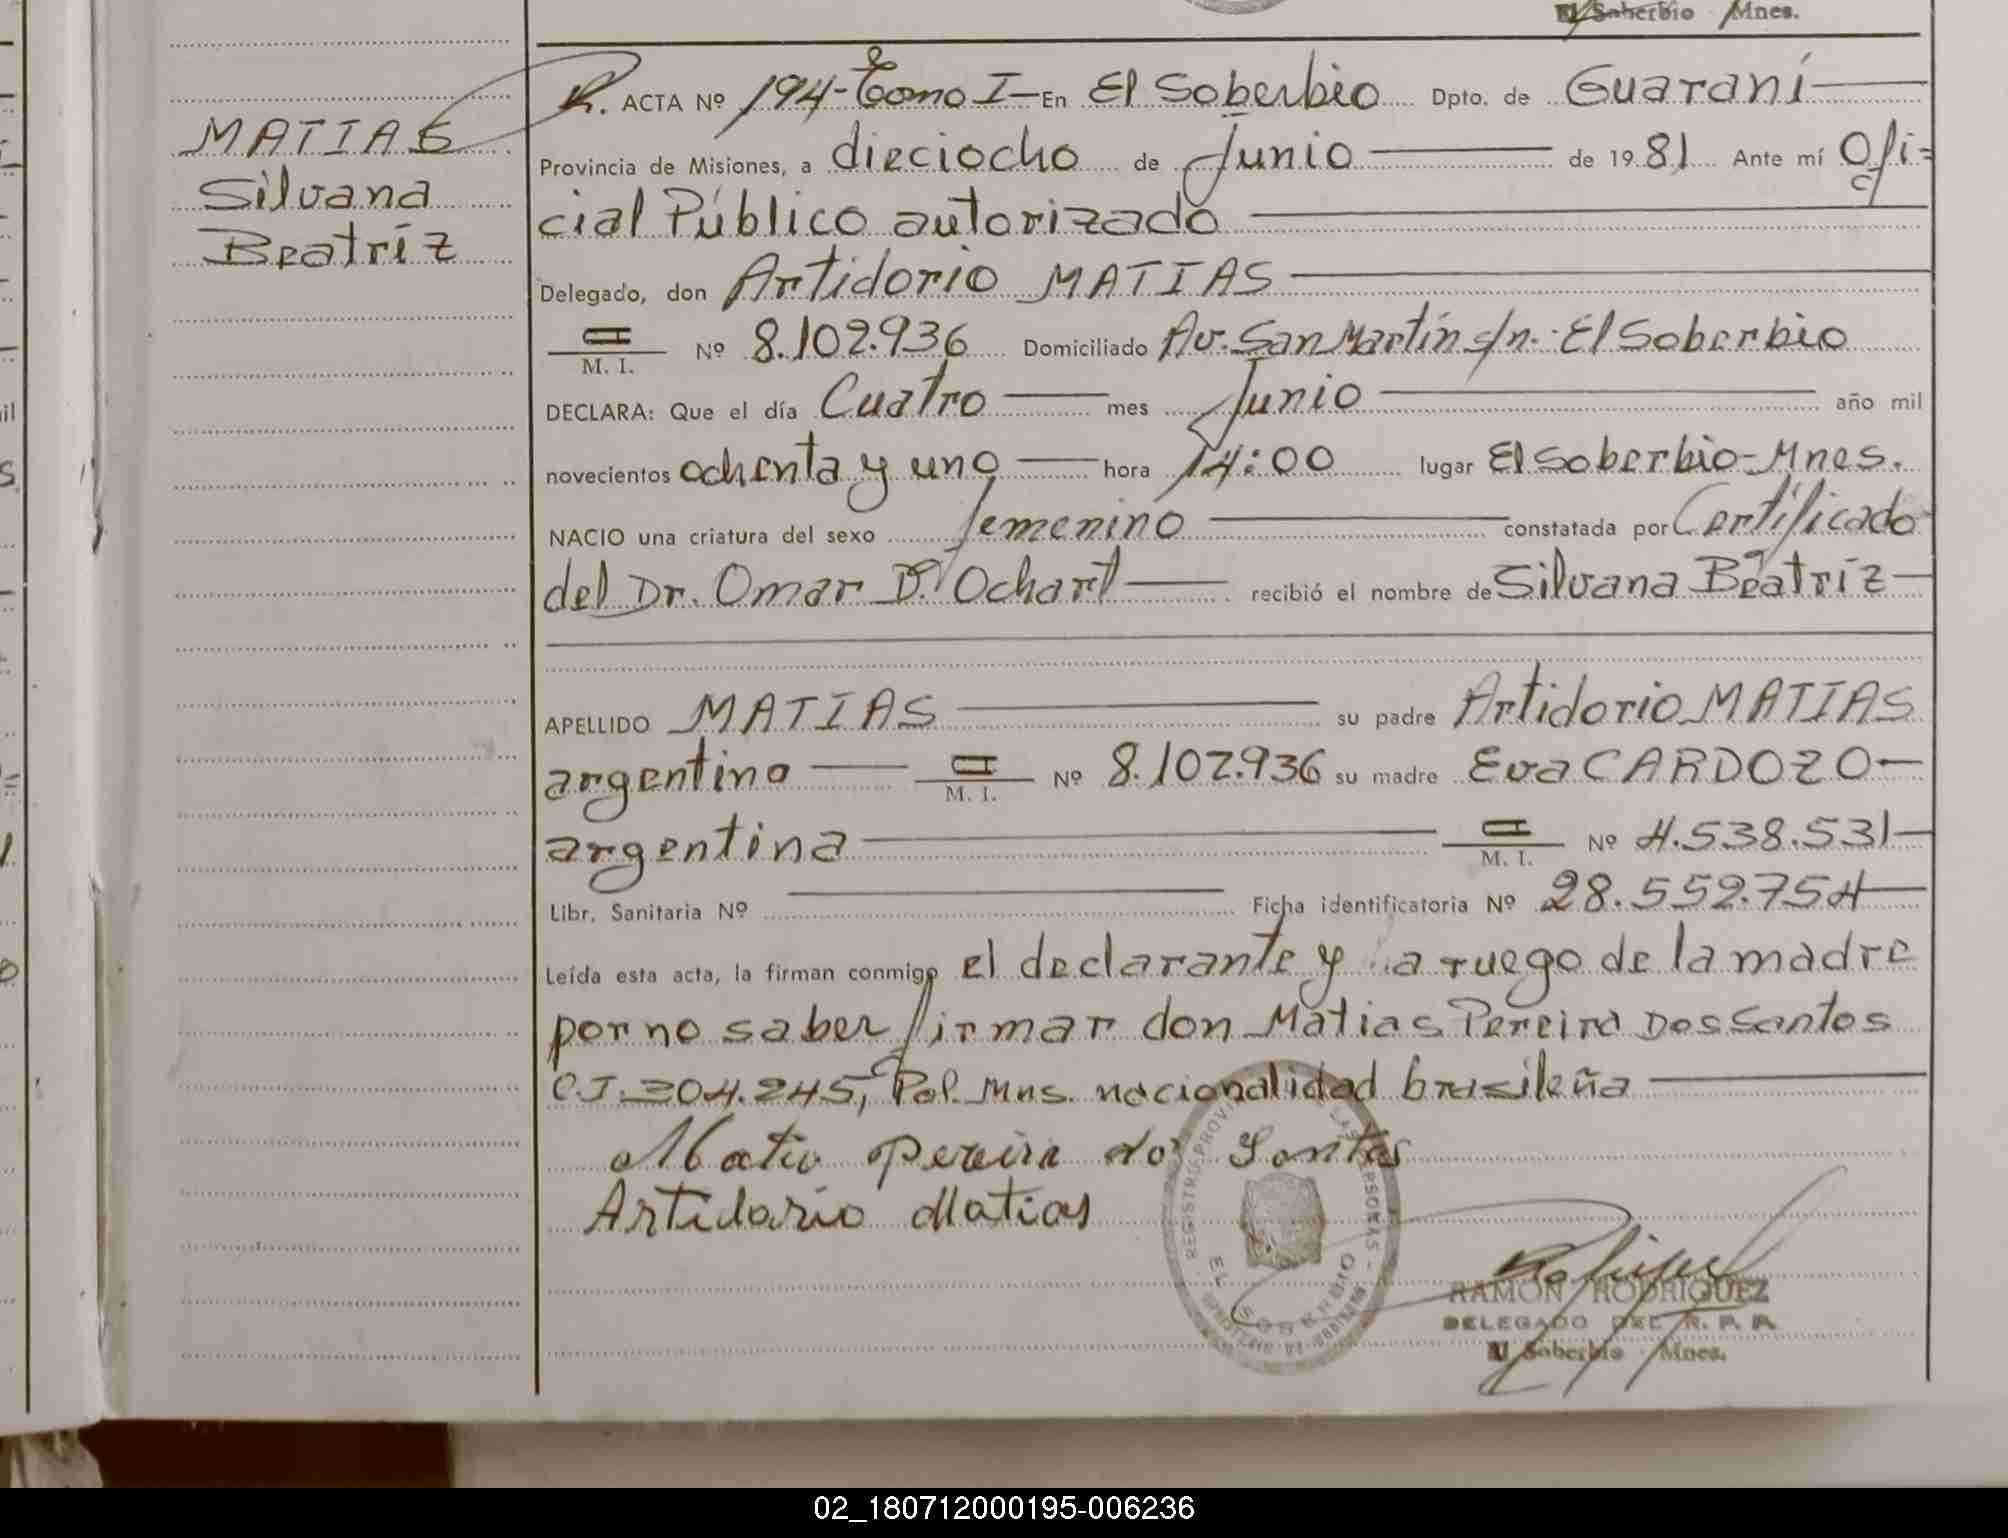 El Soberbio Mnes.
MATIAS
Silvana
Beatríz
R. ACTA Nº 194-Tomo I- En El Soberbio Dpto. de Guaraní
Provincia de Misiones, a dieciocho de Junio de 1981 Ante mí Ofi-
cial Público autorizado
Delegado, don Artidorio MATIAS
CI M. I. Nº 8.102.936 Domiciliado Av. San Martín s/n.- El Soberbio
DECLARA: Que el día Cuatro mes Junio año mil
novecientos ochenta y uno hora 14:00 lugar El Soberbio-Mnes.
NACIO una criatura del sexo femenino constatada por Certificado
del Dr. Omar D. Ochart recibió el nombre de Silvana Beatríz
APELLIDO MATIAS su padre Artidorio MATIAS
argentino CI M. I. Nº 8.102.936 su madre Eva CARDOZO
argentina CI M. I. Nº 4.538.531
Libr. Sanitaria Nº Ficha identificatoria Nº 28.552.754
Leída esta acta, la firman conmigo el declarante y a ruego de la madre
por no saber firmar don Matias Pereira Dos Santos
C.I. 304.245, Pol. Mns. nacionalidad brasileña
Matia Pereira dos Santos
Artidorio Matias
REGISTRO PROVINCIAL DE LAS PERSONAS
EL SOBERBIO
RAMON RODRIGUEZ
DELEGADO DEL R. P. P.
El Soberbio Mnes.
02_180712000195-006236